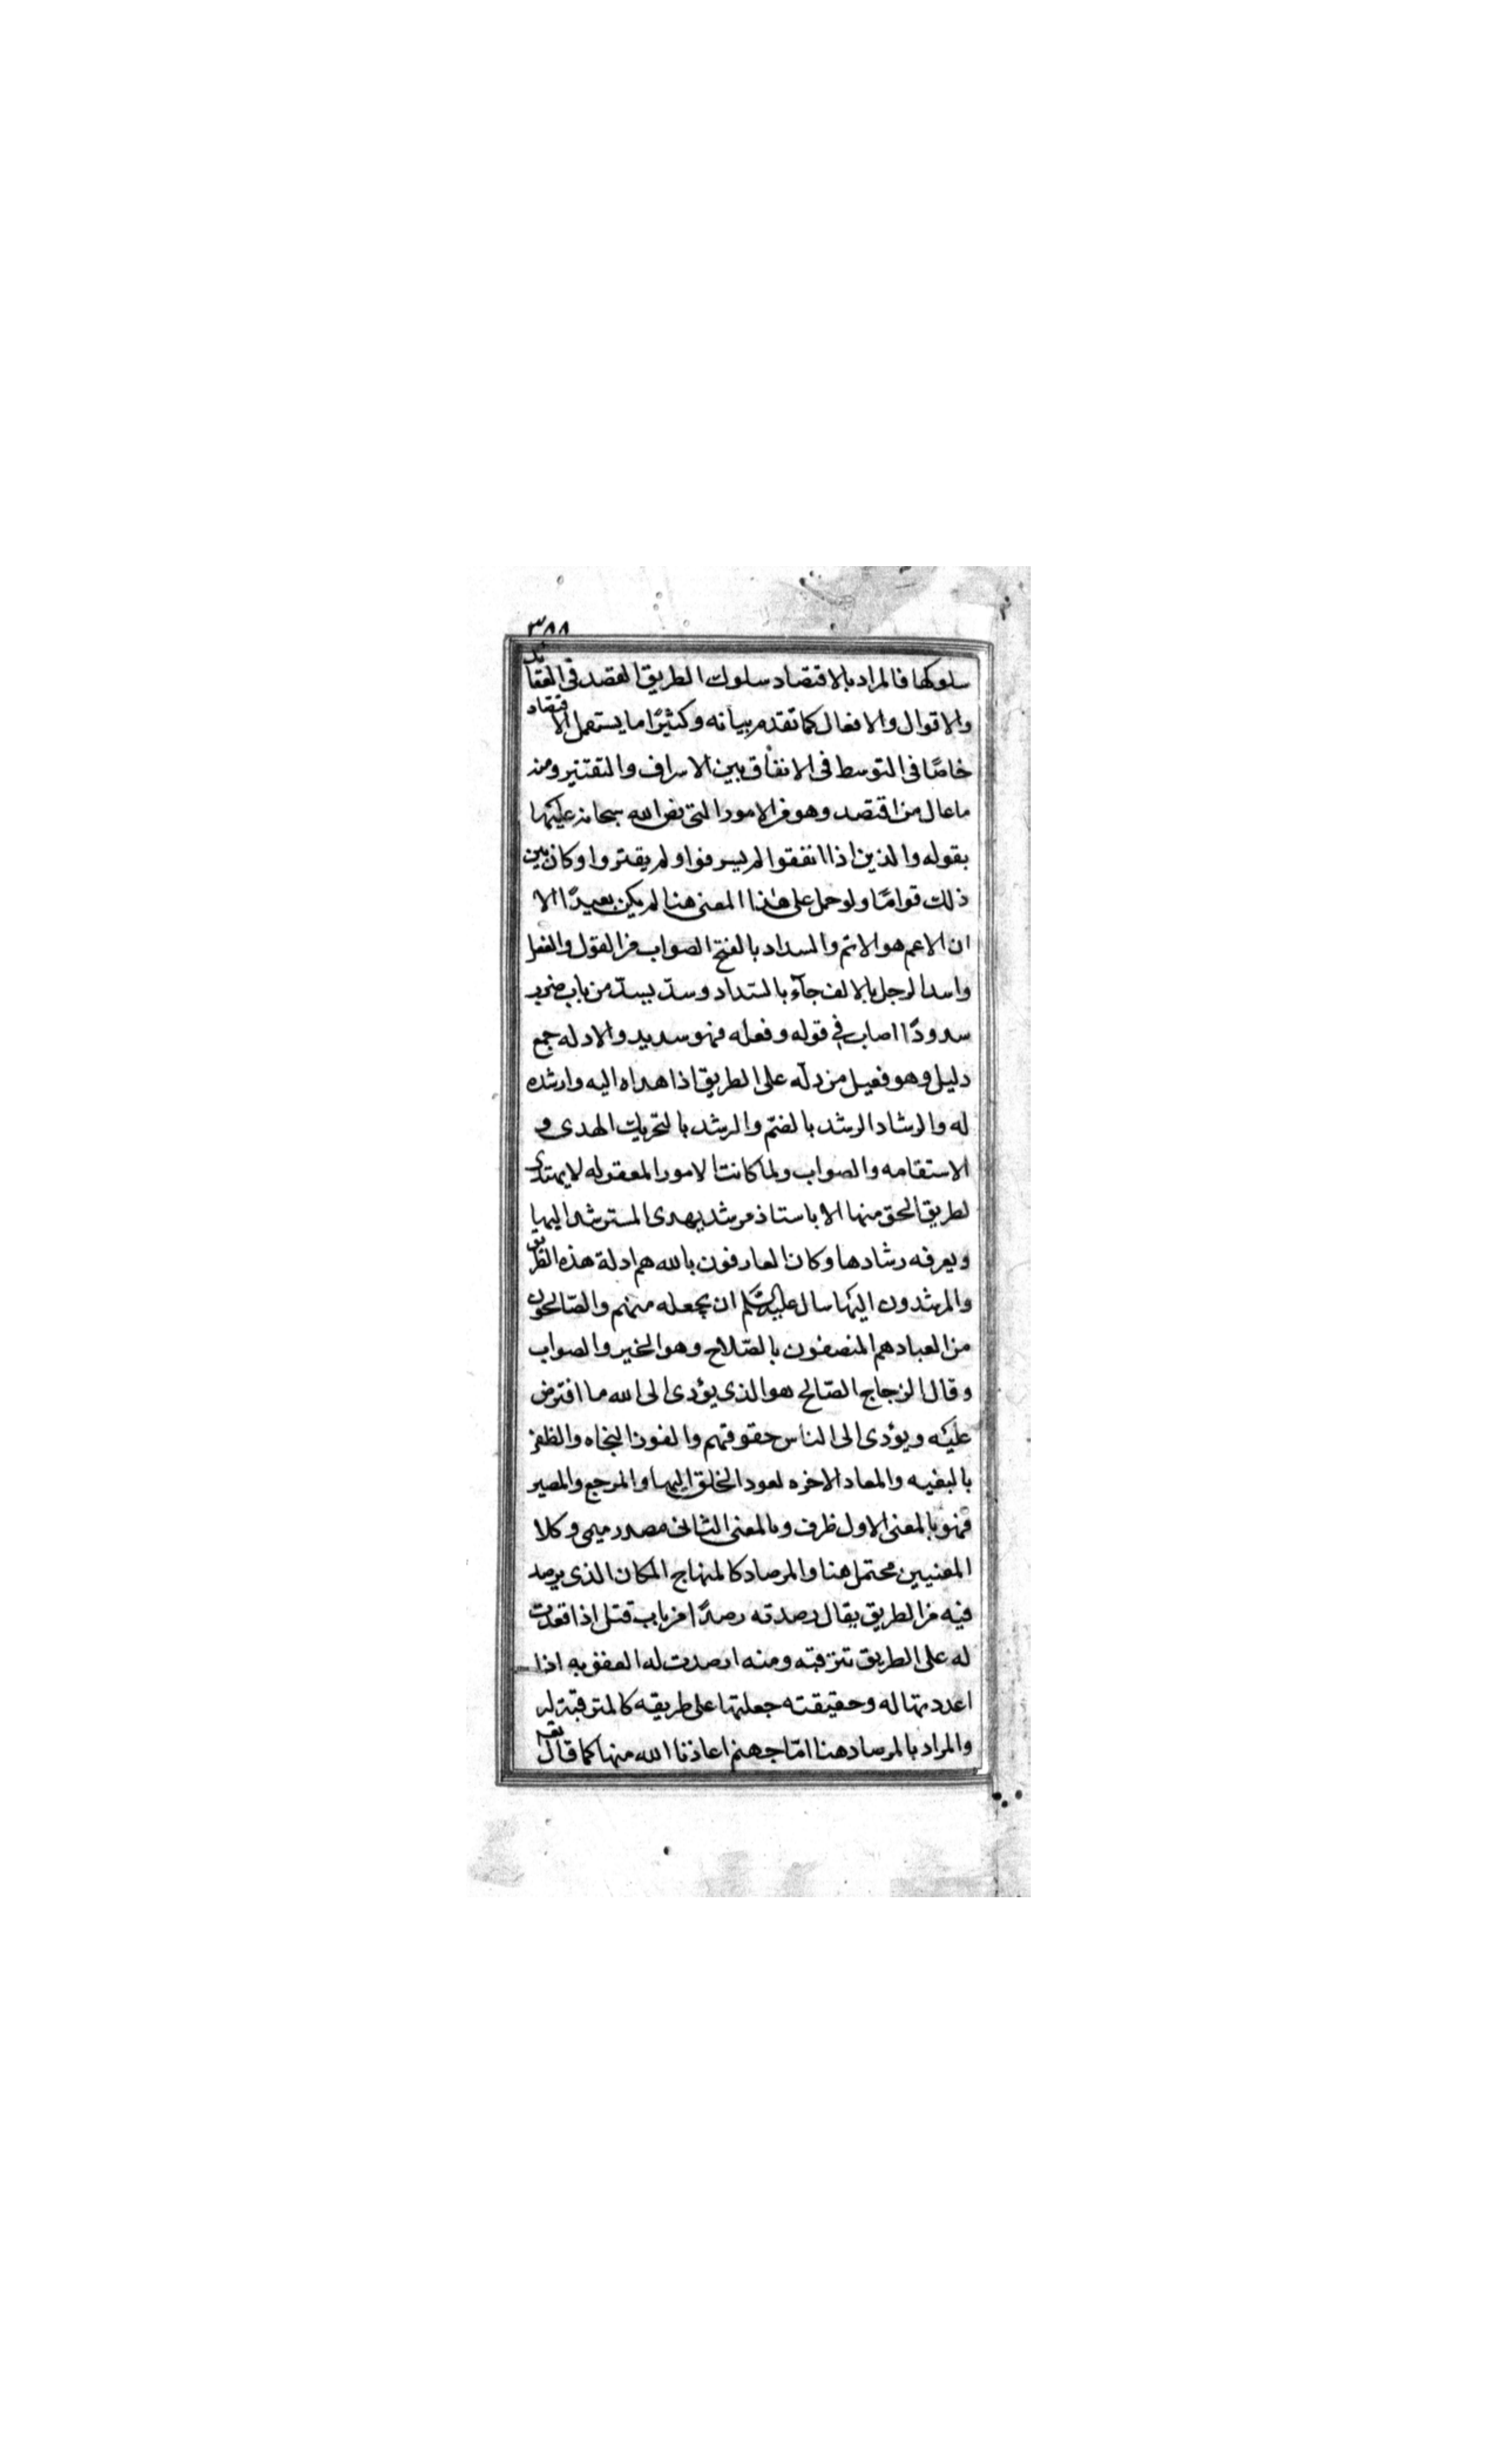 ٣٨٨
سلوكها فالمراد بالاقتصاد سلوك الطريق القصد فى العقائد
والاقوال والافعال كما تقدم بيانه وكثيرًا ما يستعمل الاقتصاد
خاصًا فى التوسط فى الانفاق بين الاسراف والتقتير ومنه
ما عال من اقتصد وهو من الامور التى نص الله سبحانه عليها
بقوله والذين اذا انفقوا لم يسرفوا ولم يقتروا وكان بين
ذلك قوامًا ولو حمل على هذا المعنى هنا لم يكن بعيدًا الا
ان الاعم هو الاتم والسداد بالفتح الصواب من القول والفعل
واسد الرجل بالالف جآء بالسّداد وسدّ يسدّ من باب ضرب
سدودًا اصاب فى قوله وفعله فهو سديد والادله جمع
دليل وهو فعيل من دلّه على الطريق اذا هداه اليه وارشده
له والرشاد الرشد بالضمّ والرشد بالتحريك الهدى و
الاستقامه والصواب ولما كانت الامور المعقوله لا يهتدى
لطريق الحق منها الا باستاذ مرشد يهدى المسترشد اليها
ويعرفه رشادها وكان العارفون بالله هم ادلة هذه الطريق
والمرشدون اليها سال عليه السّلم ان يجعله منهم والصّالحون
من العباد هم المتصفون بالصّلاح وهو الخير والصواب
وقال الزجاج الصّالح هو الذى يؤدى الى الله ما افترض
عليه ويؤدى الى الناس حقوقهم والفوز النجاه والظفر
بالبغيه والمعاد الاخره لعود الخلق اليها والمرجع والمصير
فهو بالمعنى الاول ظرف وبالمعنى الثانى مصدر ميمى وكلا
المعنيين محتمل هنا والمرصاد كالمنهاج المكان الذى يرصد
فيه من الطريق يقال رصدته رصدًا من باب قتل اذا قعدت
له على الطريق تترقبه ومنه ارصدت له العقوبه اذا
اعددتها له وحقيقته جعلتها على طريقه كالمترقبة له
والمراد بالمرصاد هنا امّا جهنم اعاذنا الله منها كما قال تعه